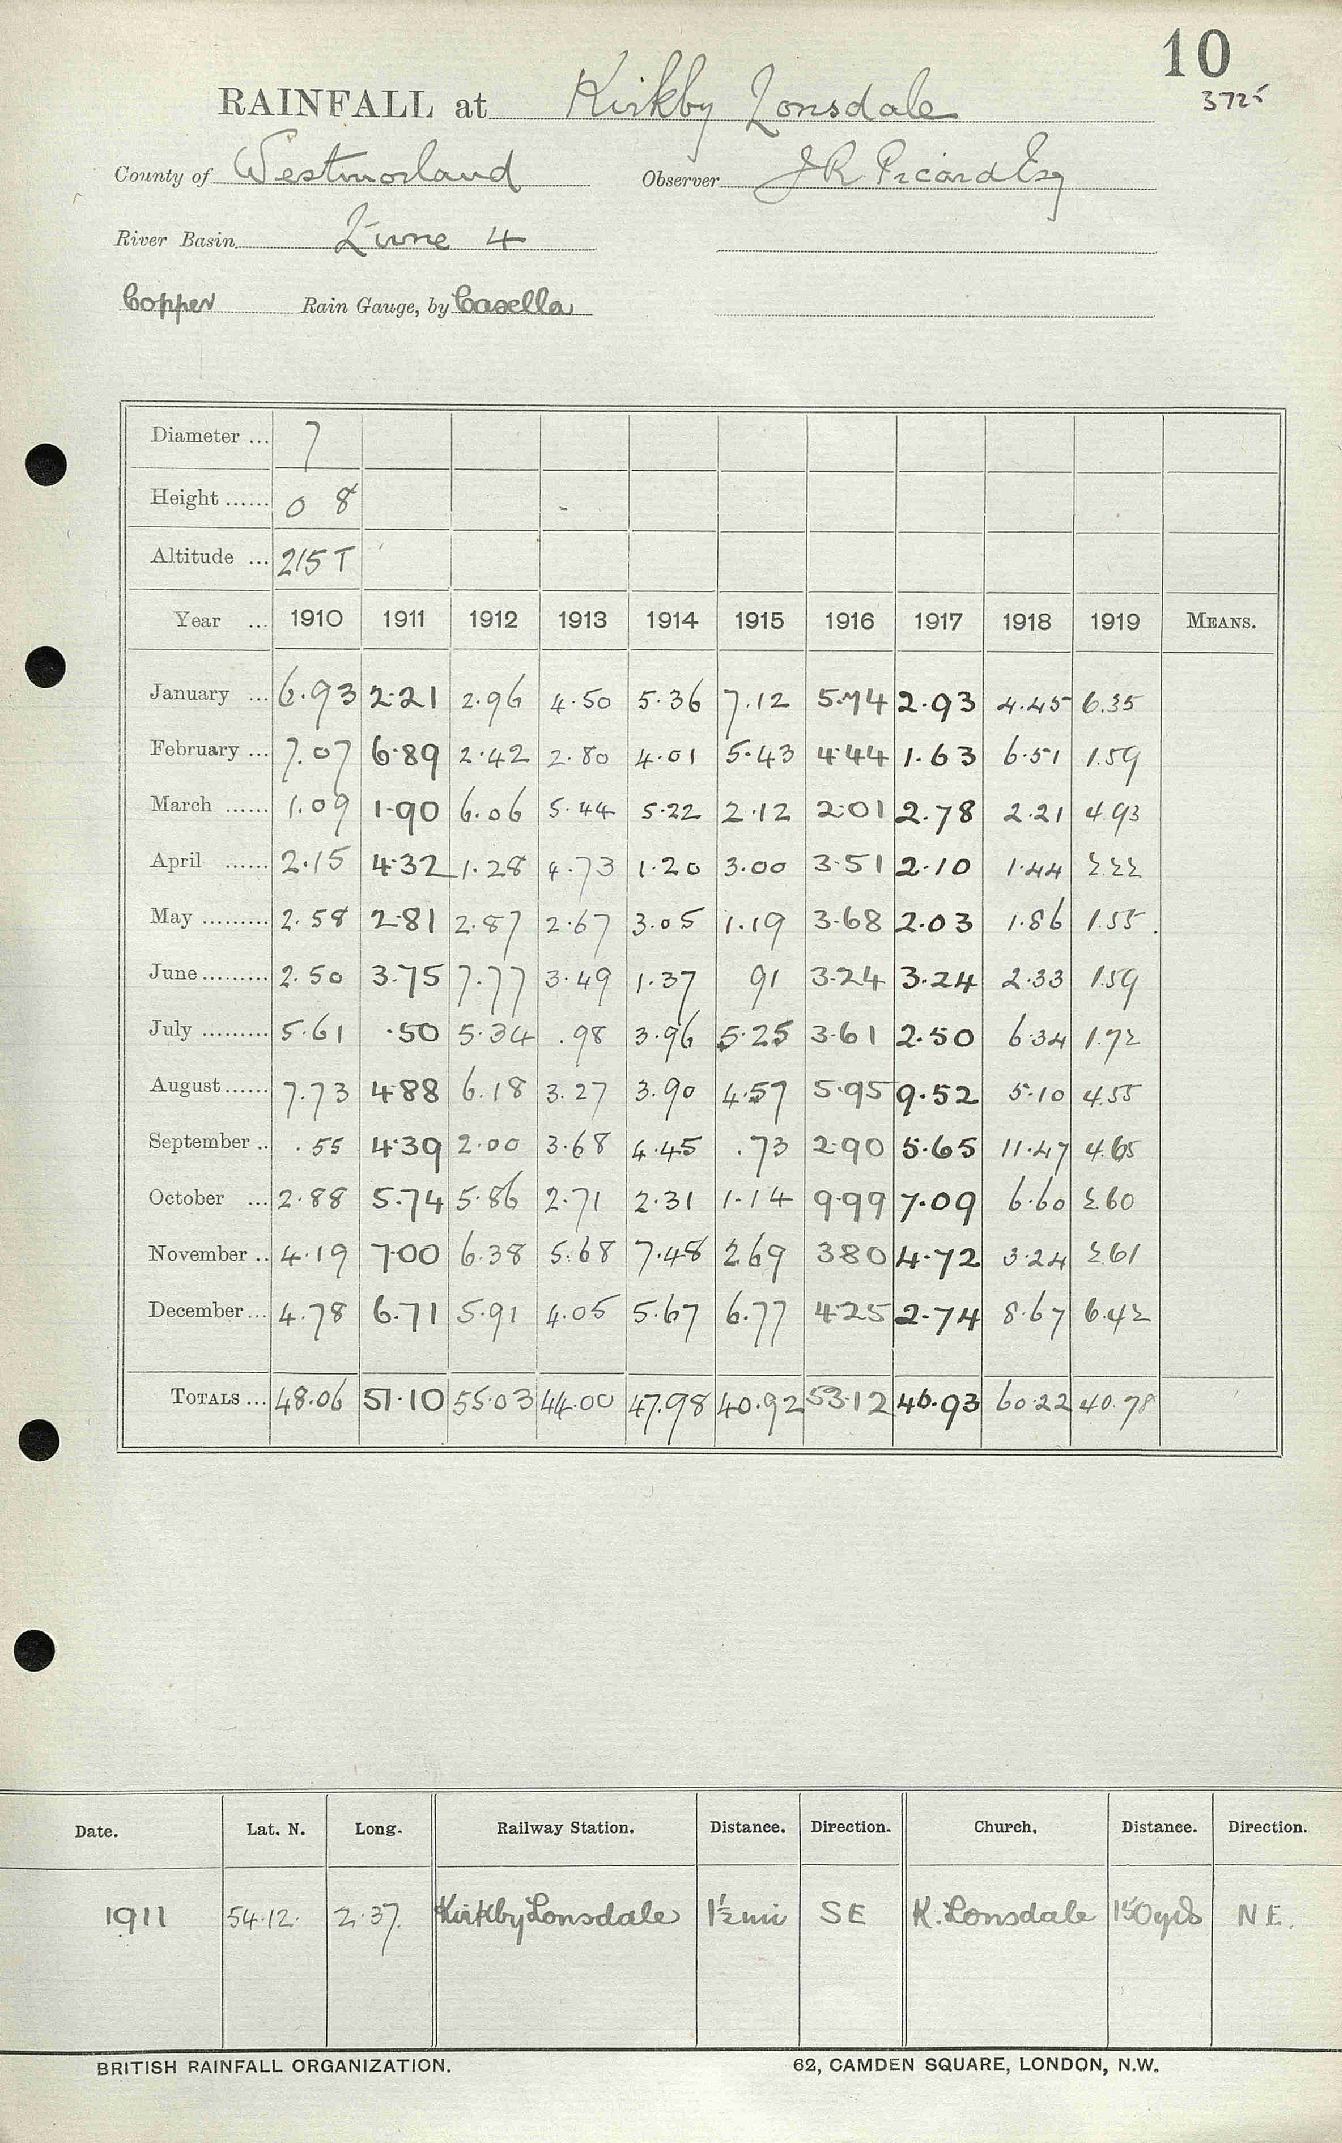 10
3725
RAINFALL at Kirkby Lonsdale
County of Westmorland Observer J R Picard Esq
River Basin Lune 4
Copper Rain Gauge, by Casella
Diameter ... 7
Height ...... 0 8
Altitude ... 215 T
Year ... 1910 1911 1912 1913 1914 1915 1916 1917 1918 1919 MEANS.
January ... 6.93 2.21 2.96 4.50 5.36 7.12 5.74 2.93 4.45 6.35
February ... 7.07 6.89 2.42 2.80 4.01 5.43 4.44 1.63 6.51 1.59
March ...... 1.09 1.90 6.06 5.44 5.22 2.12 2.01 2.78 2.21 4.93
April ...... 2.15 4.32 1.28 4.73 1.20 3.00 3.51 2.10 1.44 2.22
May ......... 2.58 2.81 2.87 2.67 3.05 1.19 3.68 2.03 1.86 1.55
June ......... 2.50 3.75 7.77 3.49 1.37 91 3.24 3.24 2.33 1.59
July ......... 5.61 .50 5.34 .98 3.96 5.25 3.61 2.50 6.34 1.72
August ...... 7.73 4.88 6.18 3.27 3.90 4.57 5.95 9.52 5.10 4.55
September .. .55 4.39 2.00 3.68 4.45 .73 2.90 5.65 11.47 4.65
October ... 2.88 5.74 5.86 2.71 2.31 1.14 9.99 7.09 6.60 2.60
November .. 4.19 7.00 6.38 5.68 7.48 2.69 3.80 4.72 3.24 2.61
December ... 4.78 6.71 5.91 4.05 5.67 6.77 4.25 2.74 8.67 6.42
TOTALS ... 48.06 51.10 55.03 44.00 47.98 40.92 53.12 46.93 60.22 40.78
Date. Lat. N. Long. Railway Station. Distance. Direction. Church. Distance. Direction.
1911 54.12. 2.37. Kirkby Lonsdale 1½ mi SE K. Lonsdale 150 yds N E.
BRITISH RAINFALL ORGANIZATION. 62, CAMDEN SQUARE, LONDON, N.W.